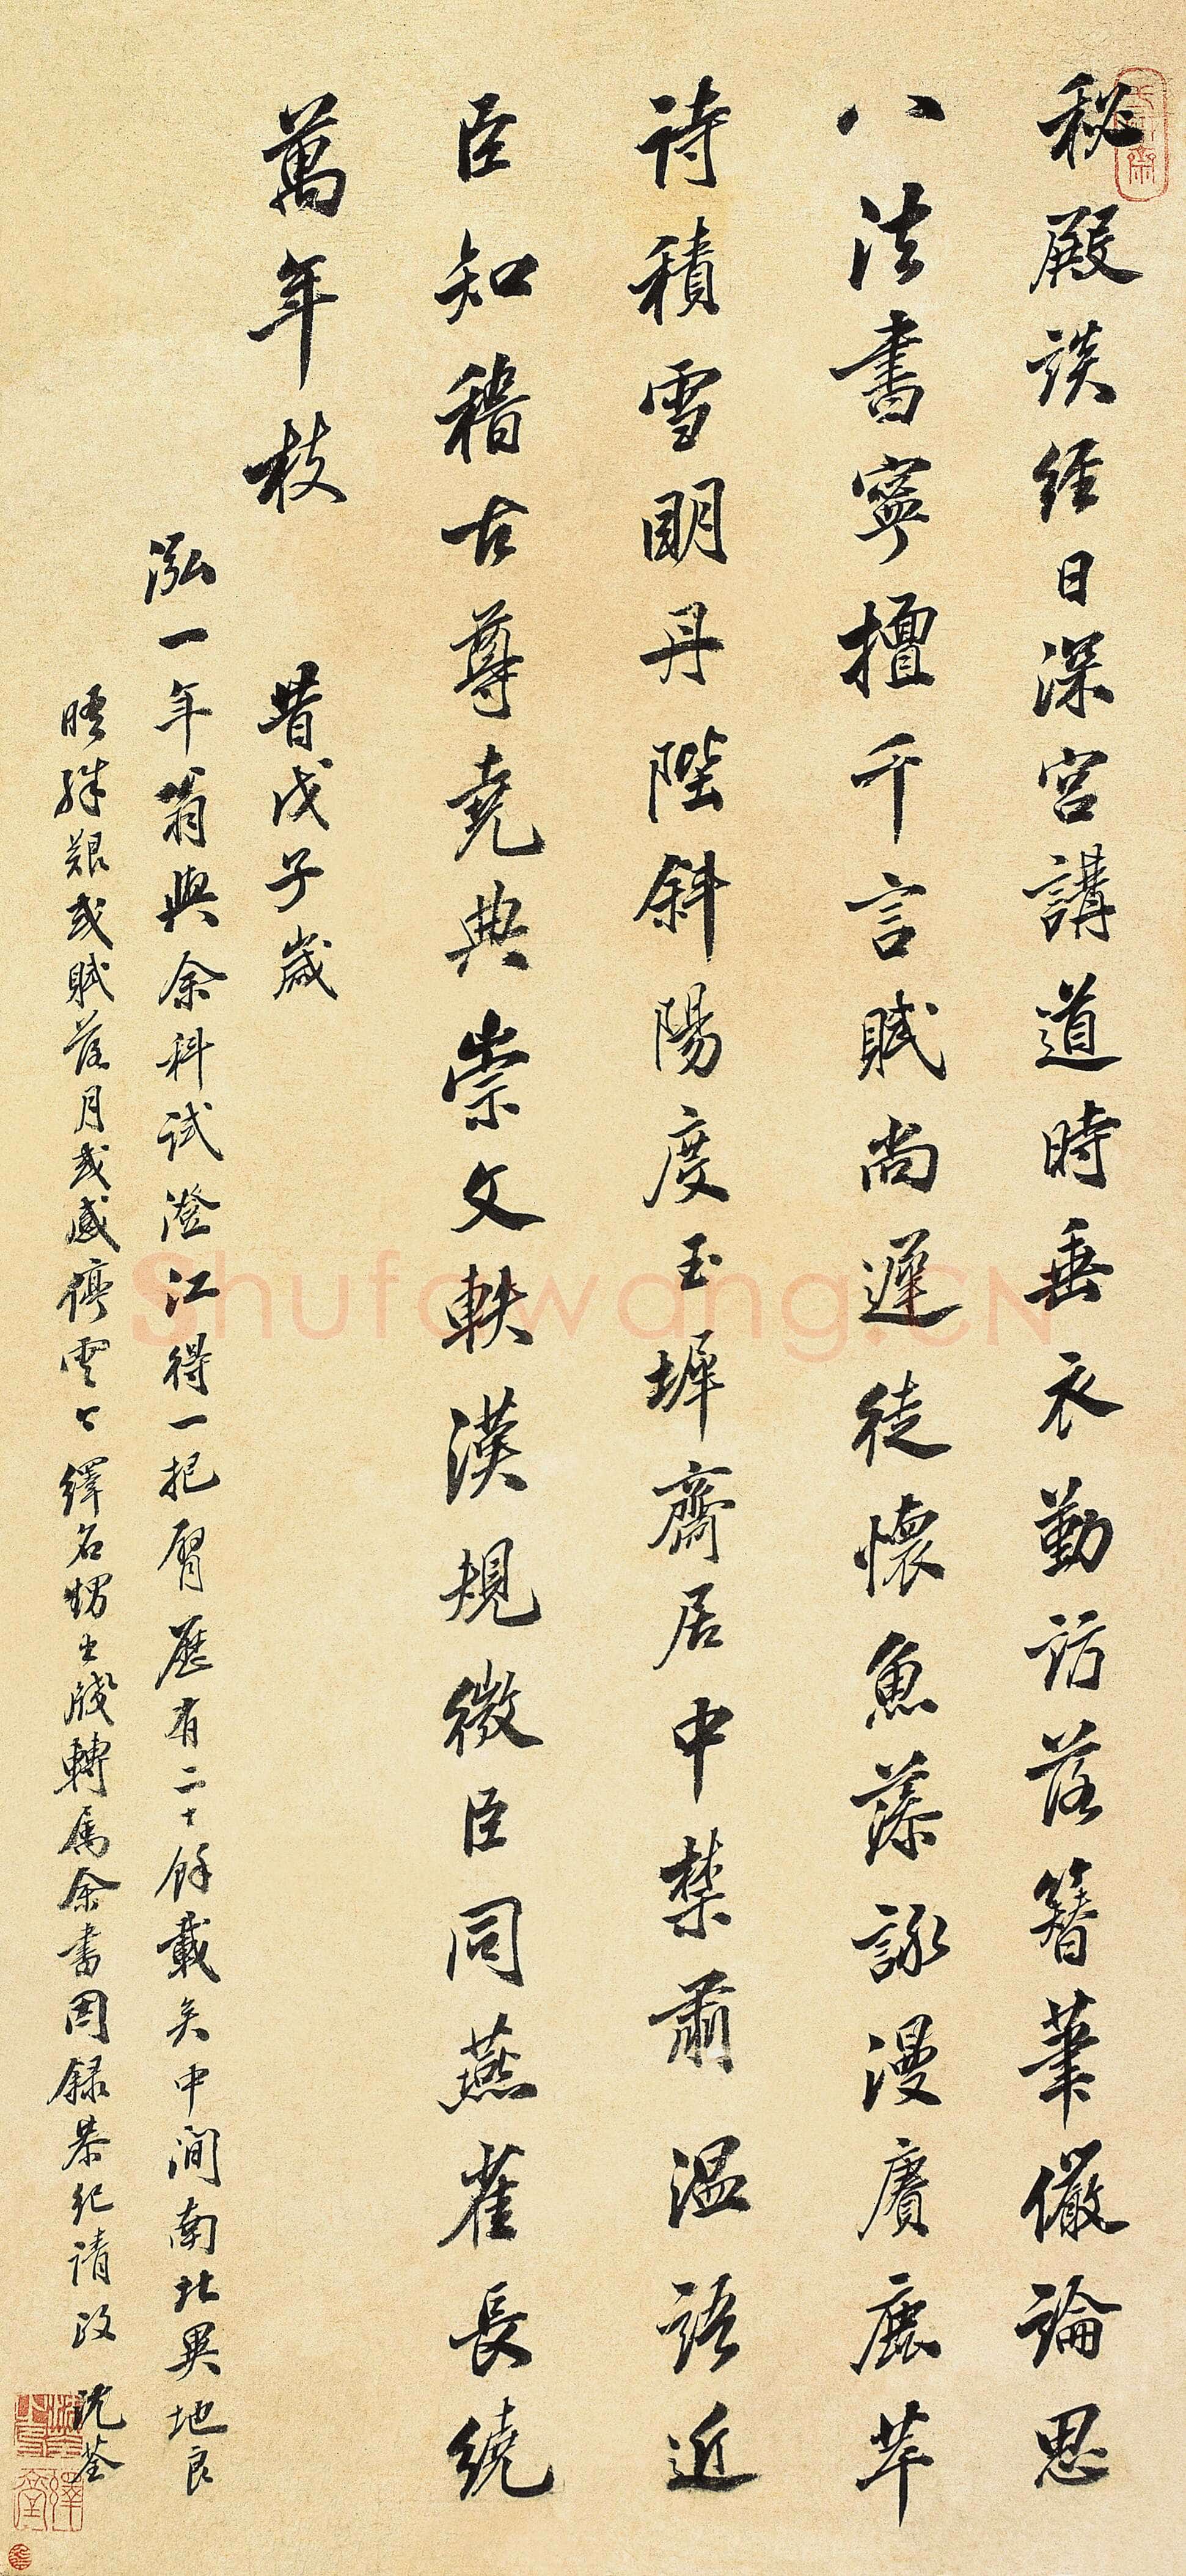 秘殿談經日深宮講道時垂衣勤訪落簪筆儼論思
八法書寧擅千言賦尚遲徒懷魚藻詠漫賡鹿苹
詩積雪明丹陛斜陽度玉墀齋居中禁肅溫語近
臣知稽古尊堯典崇文軼漢規微臣同燕雀長繞
萬年枝
昔戊子歲
泓一年翁與余科試澄江得一把臂歷有二十餘載矣中間南北異地良
晤殊艱或賦落月或感停雲今繹名甥出牋轉屬余書因錄恭紀請政 沈荃
Shufawang.CN